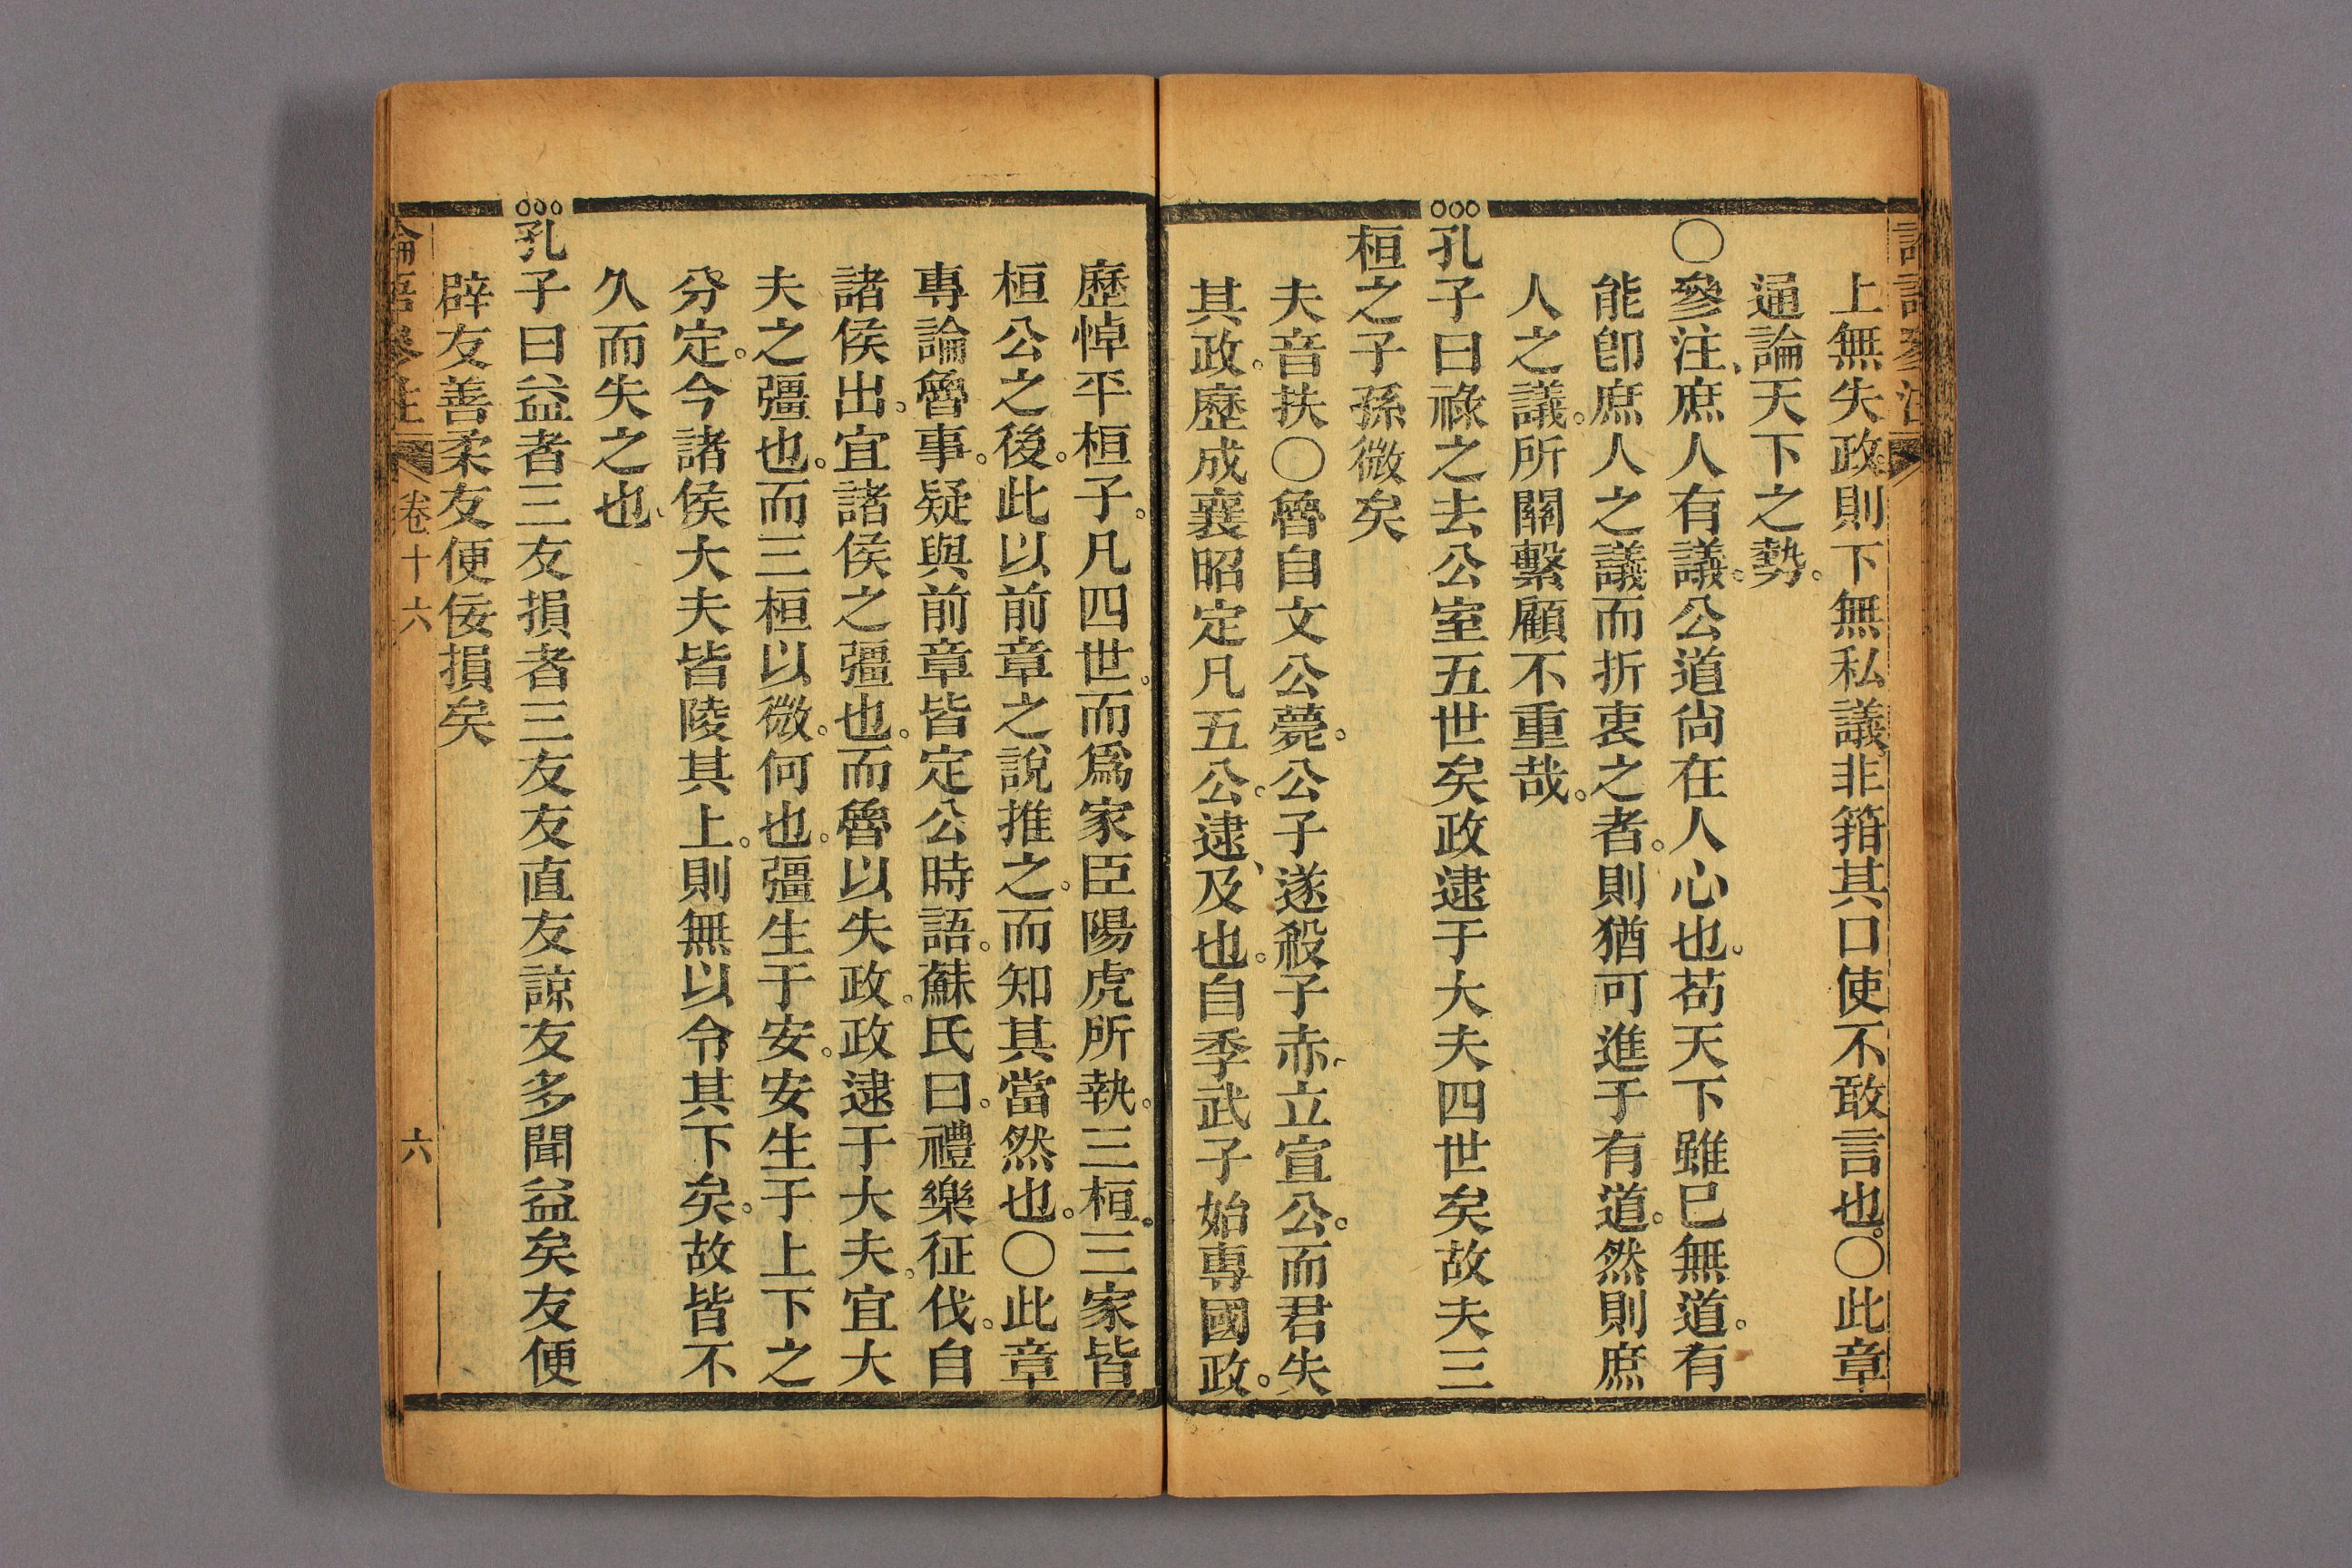 上無失政則下無私議非箝其口使不敢言也。〇此章
通論天下之勢。
〇參注、庶人有議。公道尚在人心也。苟天下雖已無道。有
能卽庶人之議而折衷之者。則猶可進于有道。然則庶
人之議。所關繫顧不重哉。
孔子曰祿之去公室五世矣政逮于大夫四世矣故夫三
桓之子孫微矣
夫音扶〇魯自文公薨。公子遂殺子赤、立宣公。而君失
其政。歷成襄昭定凡五公。逮、及也。自季武子始專國政。
歷悼平桓子。凡四世。而爲家臣陽虎所執。三桓。三家皆
桓公之後。此以前章之說推之。而知其當然也。〇此章
專論魯事。疑與前章皆定公時語。蘇氏曰。禮樂征伐。自
諸侯出。宜諸侯之彊也。而魯以失政。政逮于大夫。宜大
夫之彊也。而三桓以微。何也。彊生于安。安生于上下之
分定。今諸侯大夫皆陵其上。則無以令其下矣。故皆不
久而失之也、
孔子曰益者三友損者三友友直友諒友多聞益矣友便
辟友善柔友便佞損矣
論語參注 卷十六 六